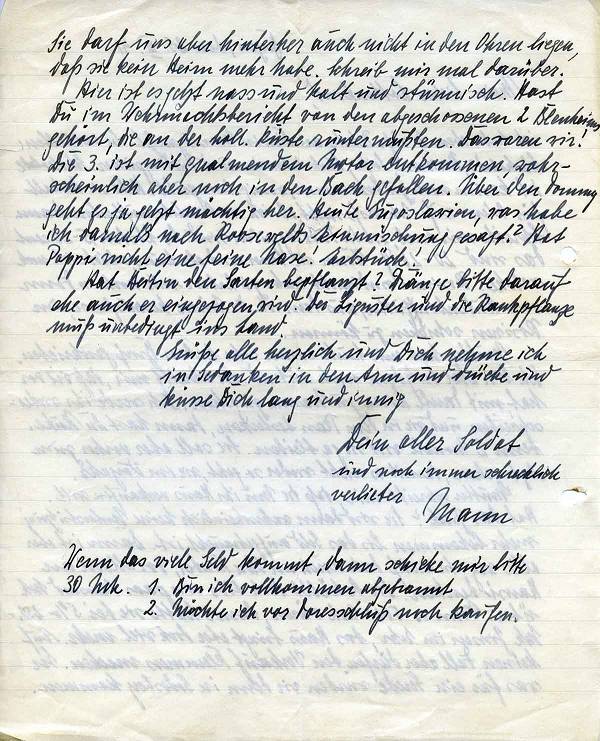 Sie darf uns aber hinterher auch nicht in den Ohren liegen,
daß sie kein Heim mehr habe. Schreib mir mal darüber.
Hier ist es jetzt nass und kalt und stürmisch. Hast
Du im Wehrmachtsbericht von den abgeschossenen 2 Blenheims
gehört, die an der holl. Küste runtermußten. Das waren wir!
Die 3. ist mit qualmendem Motor entkommen, wahr-
scheinlich aber noch in den Bach gefallen. Über den
geht es ja jetzt mächtig her. Heute Jugoslavien, was habe
ich damals nach Roosevelts Einmischung gesagt? Hat
Pappi nicht eine feine Nase!
Hat den Garten bepflanzt? Dränge bitte darauf
ehe auch er eingezogen wird. Der Liguster und die Rankpflanze
muß unbedingt ins Land.
Grüße alle herzlich und Dich nehme ich
in Gedanken in den Arm und drücke und
küsse Dich lang und innig
Dein alter Soldat
und noch immer schrecklich
verliebter Mann
Wenn das viele Geld kommt, dann schicke mir bitte
30 Mk. 1. Bin ich vollkommen abgebrannt
2. Möchte ich vor Toresschluß noch kaufen.